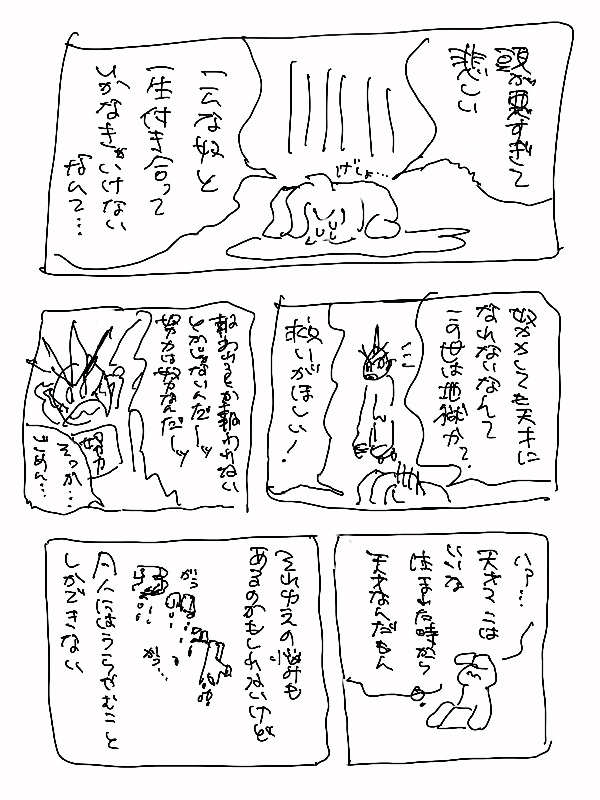 頭が悪すぎて
悲しい
げしょ…
こんな奴と
一生付き合って
いかなきゃいけない
なんて…
努力しても天才に
なれないなんて
この世は地獄か?
救いがほしい!
報われるとか報われない
とかじゃないんだーッ
努力は努力なんだーッ
努力
そっか…
ごめん…
ハァ…
天才くんは
いいな
生まれた時から
天才なんだもん
それゆえの悩みも
あるのかもしれないけど
凡人にはうらやむこと
しかできない